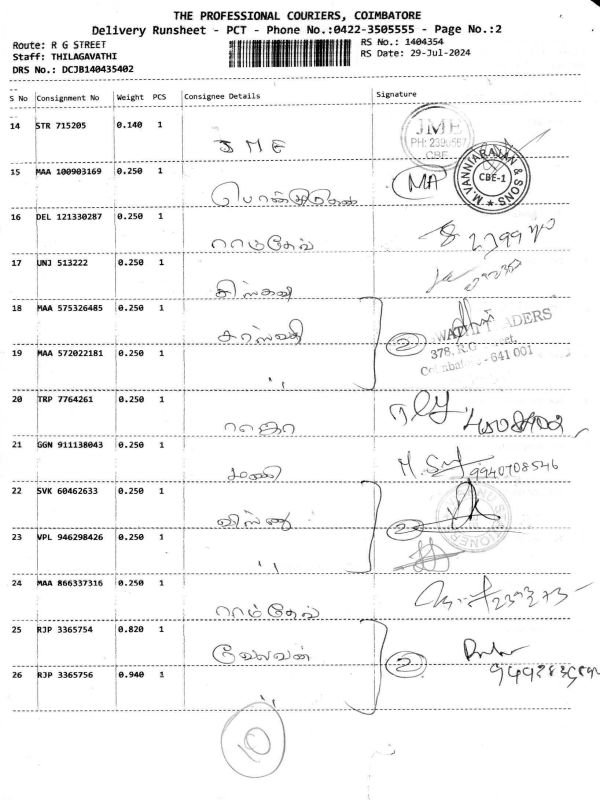 THE PROFESSIONAL COURIERS, COIMBATORE
Delivery Runsheet - PCT - Phone No.:0422-3505555 - Page No.:2
Route: R G STREET
RS No.: 1404354
Staff: THILAGAVATHI
RS Date: 29-Jul-2024
DRS No.: DCJB140435402
S No Consignment No Weight PCS Consignee Details Signature
14 STR 715205 0.140 1 JME JME
CBE
15 MAA 100903169 0.250 1 MA M.VANNIARAJAN & SONS CBE-1
16 DEL 121330287 0.250 1 ராம்தேவ்
17 UNJ 513222 0.250 1
18 MAA 575326485 0.250 1 சரஸ்வதி 2
378, R.G
19 MAA 572022181 0.250 1 " Coimbatore - 641 001
20 TRP 7764261 0.250 1 ராஜா
21 GGN 911138043 0.250 1 மணி 9940708546
22 SVK 60462633 0.250 1 விஸ்ணு 2
23 VPL 946298426 0.250 1 "
24 MAA 866337316 0.250 1 ராம்தேவ்
25 RJP 3365754 0.820 1 வேலவன் 2
26 RJP 3365756 0.940 1 "
10